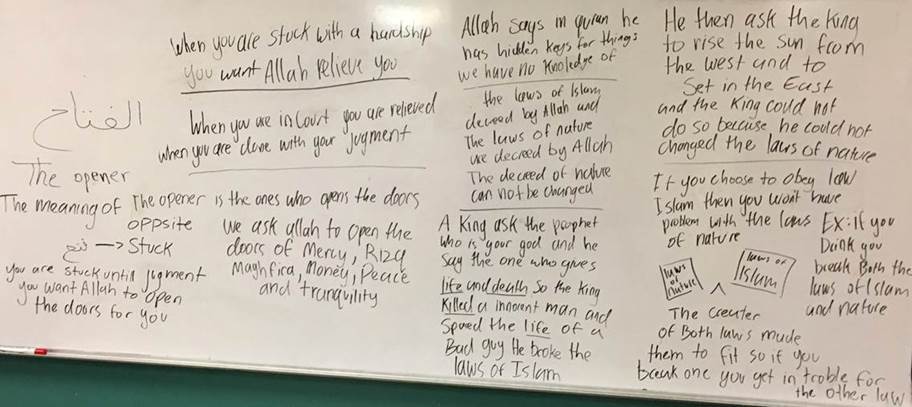 الفتاح
The opener
The meaning of The opener is the ones who opens the doors
oppsite
فتح → Stuck
you are stuck until jugment
you want Allah to open
the doors for you
When you are stuck with a hardship
you want Allah relieve you
When you are in Court you are relieved
when you are done with your jugment
We ask allah to open the
doors of Mercy, Rizq
Maghfira, Money, Peace
and tranquility
Allah says in quran he
has hidden keys for things
we have no knoledge of
the laws of Islam
decreed by Allah and
The laws of nature
are decreed by Allah
The decreed of nature
can not be changed
A King ask the prophet
who is your god and he
say the one who gives
life and death so the king
Killed a innorent man and
Spared the life of a
Bad guy He broke the
laws of Islam
He then ask the King
to rise the sun from
the west and to
Set in the East
and the King could not
do so because he could not
changed the laws of nature
If you choose to obey law
Islam then you won't have
problem with the laws
of nature
Ex: if you
Drink you
break Both the
laws of Islam
and nature
laws of
nature
laws of
Islam
The creater
of Both laws made
them to fit so if you
break one you get in troble for
the other law